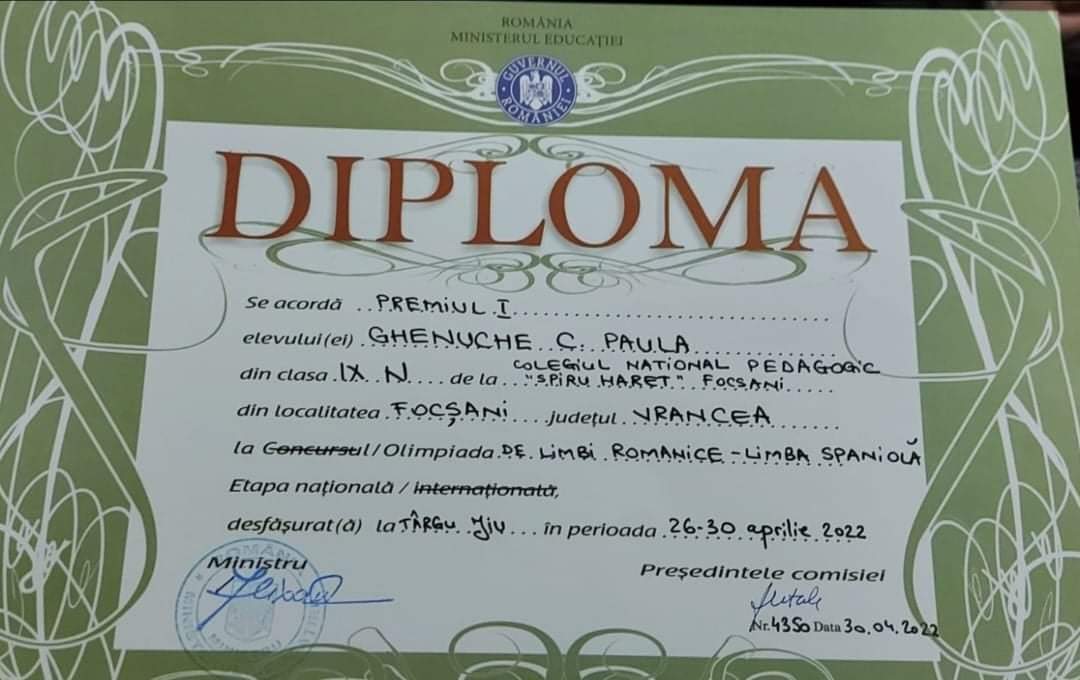 ROMÂNIA
MINISTERUL EDUCAȚIEI
GUVERNUL ROMÂNIEI
DIPLOMA
Se acordă ..PREMIUL I..............................
elevului(ei) .GHENUCHE C. PAULA..................
din clasa .IX N.... de la ..COLEGIUL NATIONAL PEDAGOGIC
"SPIRU HARET" FOCSANI.....
din localitatea .FOCȘANI....județul .VRANCEA........
la Concursul/Olimpiada DE LIMBI ROMANICE - LIMBA SPANIOLĂ
Etapa națională / internațională,
desfășurat(ă) la TÂRGU JIU... în perioada .26-30 aprilie 2022
Ministru
Președintele comisiei
Nr.4350 Data 30.04.2022
ROMÂNIA